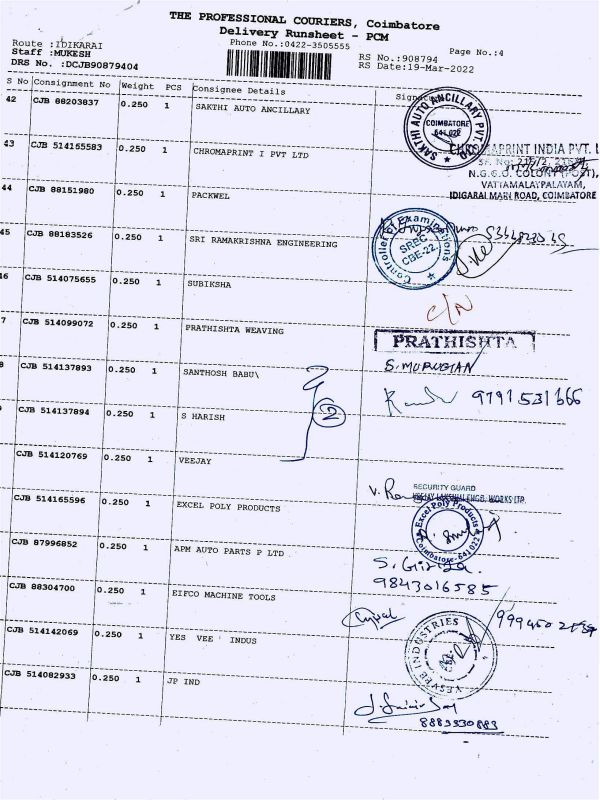 THE PROFESSIONAL COURIERS, Coimbatore
Delivery Runsheet - PCM
Phone No.:0422-3505555
Page No.:4
Route :IDIKARAI
Staff :MUKESH
DRS No. :DCJB90879404
RS No.:908794
RS Date:19-Mar-2022
S No Consignment No Weight PCS Consignee Details Signature
42 CJB 88203837 0.250 1 SAKTHI AUTO ANCILLARY
SAKTHI AUTO ANCILLARY PVT
COIMBATORE
641 022
43 CJB 514165583 0.250 1 CHROMAPRINT I PVT LTD
CHROMAPRINT INDIA PVT. L
N.G.G.O. COLONY (POST),
VATTAMALAYPALAYAM,
IDIGARAI MAIN ROAD, COIMBATORE
44 CJB 88151980 0.250 1 PACKWEL
45 CJB 88183526 0.250 1 SRI RAMAKRISHNA ENGINEERING
Controller of Examinations
SREC
CBE-22.
46 CJB 514075655 0.250 1 SUBIKSHA
C/N
7 CJB 514099072 0.250 1 PRATHISHTA WEAVING
PRATHISHTA
S. MURUGAN
8 CJB 514137893 0.250 1 SANTHOSH BABU\
9791531666
9 CJB 514137894 0.250 1 S HARISH
2
CJB 514120769 0.250 1 VEEJAY
SECURITY GUARD
VEEJAY LAKSHMI ENGG. WORKS LTD.
CJB 514165596 0.250 1 EXCEL POLY PRODUCTS
Excel Poly Products
Coimbatore-641 022
CJB 87996852 0.250 1 APM AUTO PARTS P LTD
S. Girija
9843016585
CJB 88304700 0.250 1 EIFCO MACHINE TOOLS
CJB 514142069 0.250 1 YES VEE INDUS
YESVEE INDUSTRIES
CJB 514082933 0.250 1 JP IND
8883330883